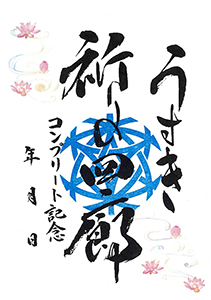 うすき
祈りの回廊
コンプリート記念
年 月 日